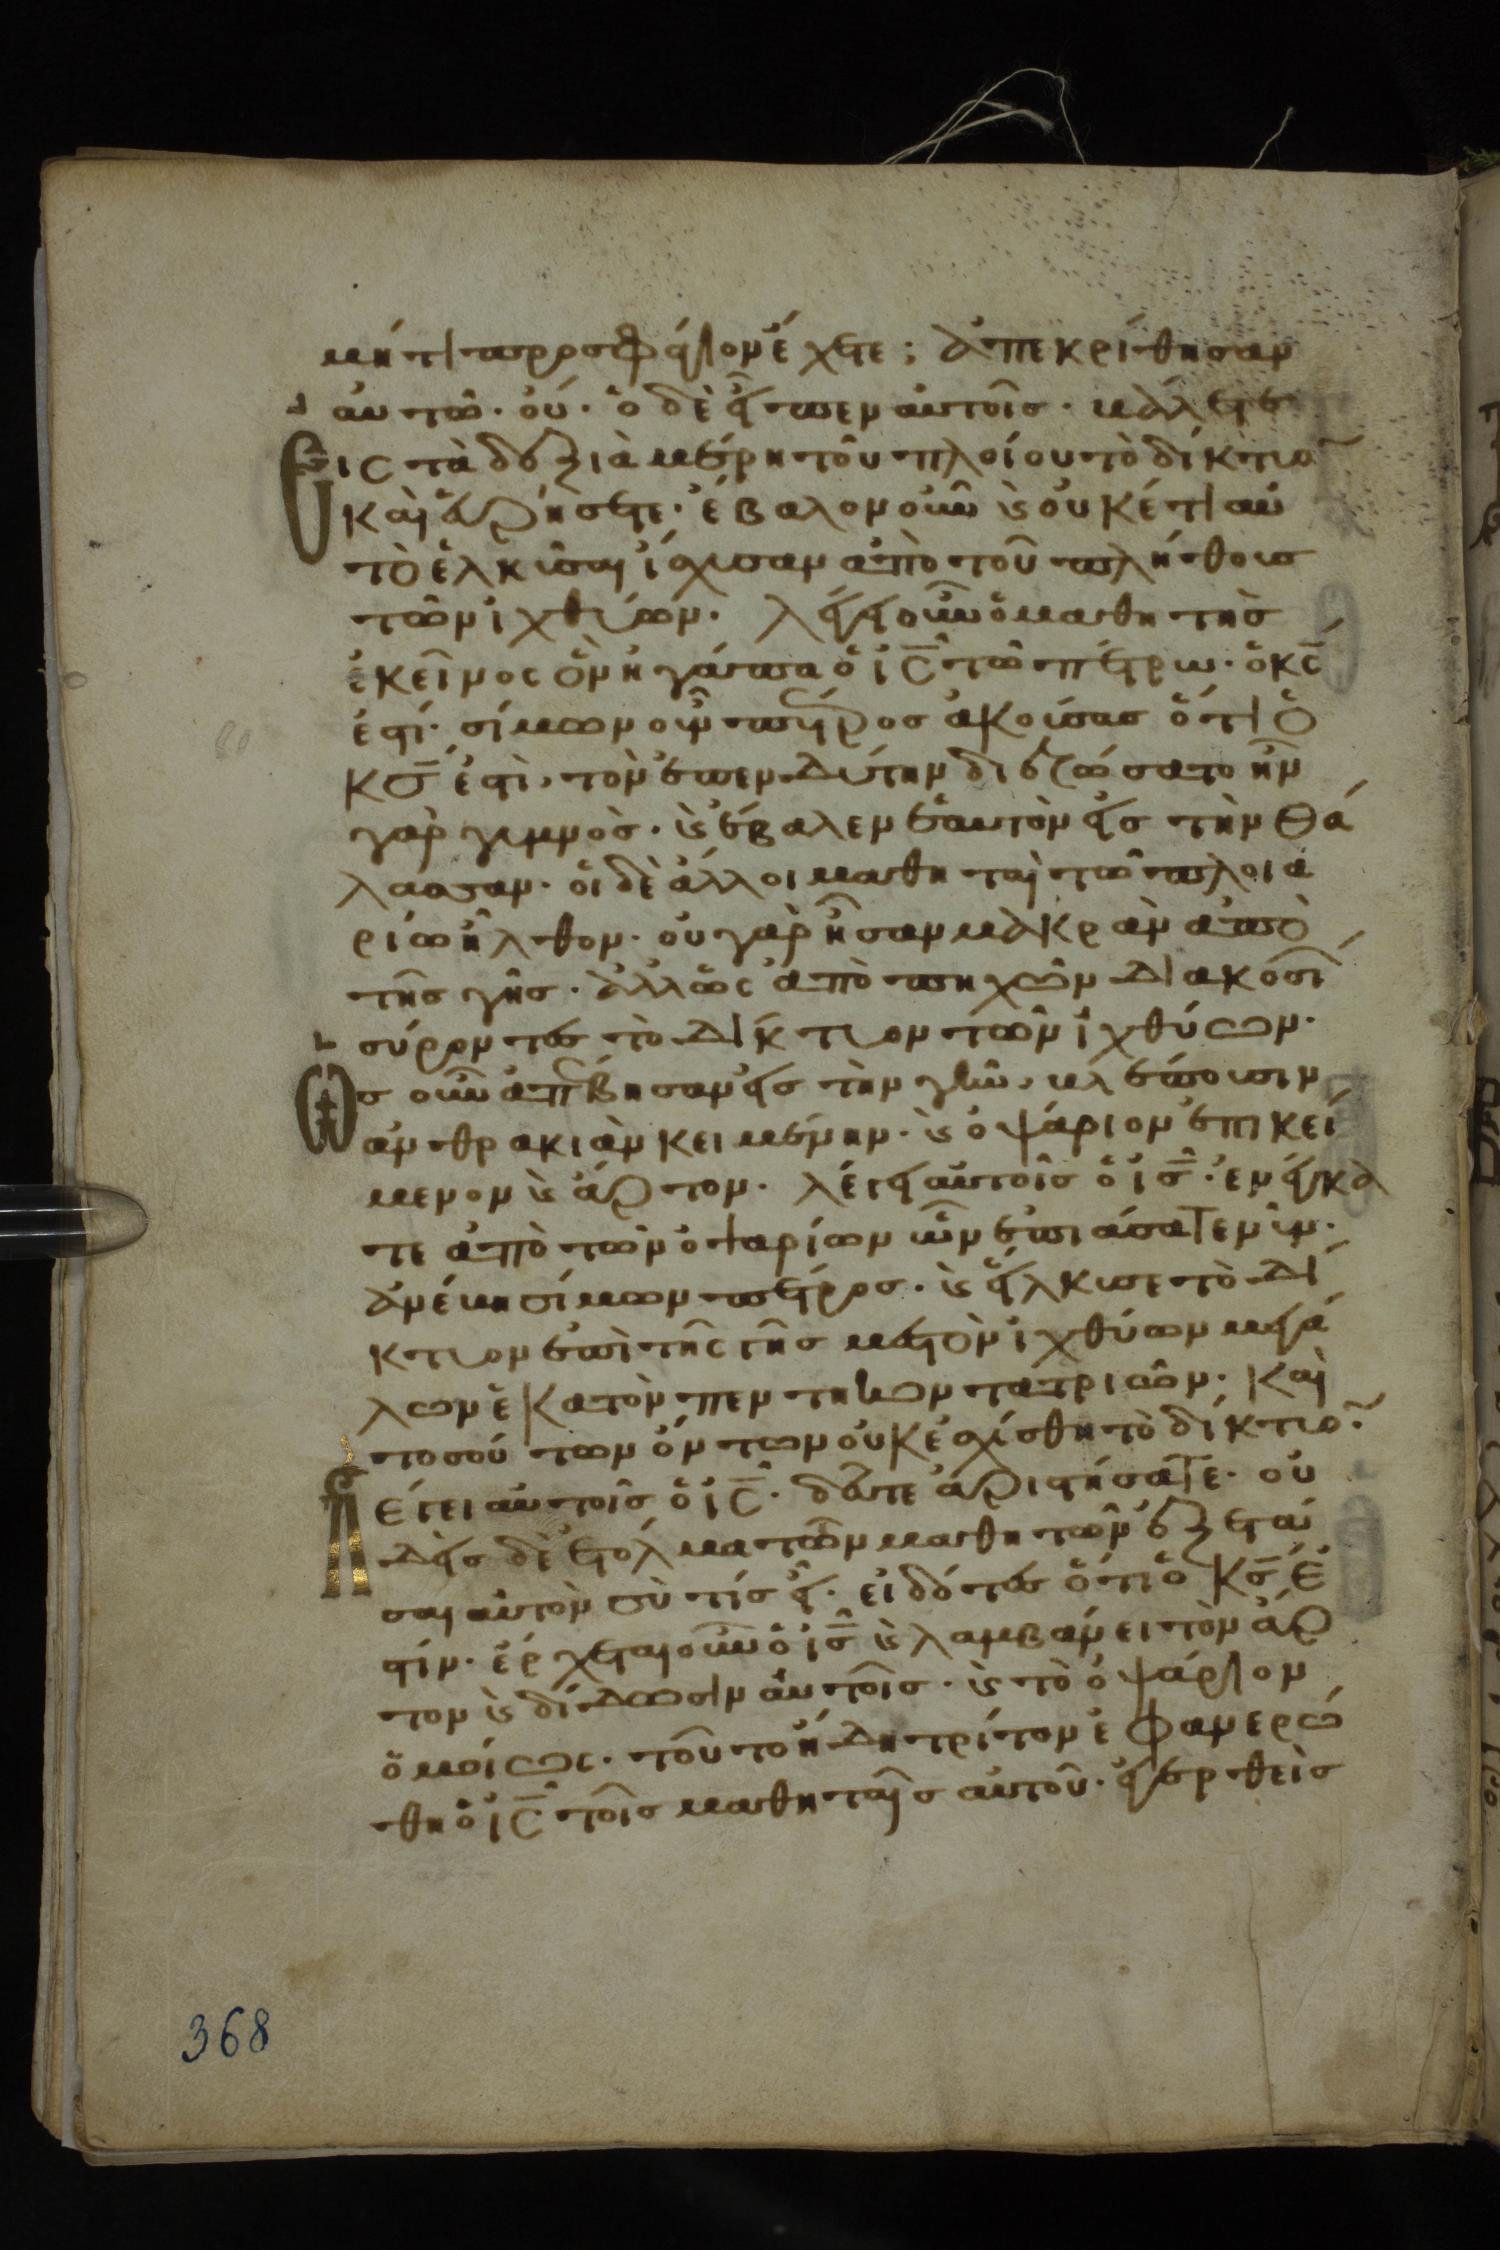 μήτι προσφάγιον ἔχετε; ἀπεκρίθησαν
αὐτῶ· οὔ· ὁ δὲ εἶπεν αὐτοῖς· βάλετε
εἰς τὰ δεξιὰ μέρη τοῦ πλοίου τὸ δίκτυο̅
καὶ εὑρήσετε· ἔβαλον οὖν κ̀ οὐκέτι αὐ
τὸ ἑλκῦσαι ἴσχυσαν ἀπὸ τοῦ πλήθους
τῶν ἰχθύων· λέγει οὖν ὁ μαθητὴς
ἐκεῖνος ὃν ἠγάπα ὁ ις̅ τῶ πέτρω· ὁ κς̅
ἐστί· σίμων οὖν πέτρος ἀκούσας ὅτι ὁ
κς̅ ἐστὶ, τὸν ἐπενδύτην διεζώσατο ἦν
γὰρ γυμνὸς· κ̀ ἔβαλεν ἑαυτὸν εἰς τὴν θά
λασσαν· οἱ δὲ ἄλλοι μαθηταὶ τῶ πλοια
ρίω ἦλθον· οὐ γὰρ ἦσαν μακρὰν ἀπὸ
τῆς γῆς· ἀλλ' ὡς ἀπὸ πηχῶν διακοσί
σύροντες τὸ δίκτυον τῶν ἰχθύων·
ὡς οὖν ἀπέβησαν εἰς τὴν γῆν, βλέπουσιν
ἀνθρακιὰν κειμένην· κ̀ ὀψάριον ἐπικεί
μενον κ̀ ἄρτον· λέγει αὐτοῖς ὁ ις̅· ἐνέγκα
τε ἀπὸ τῶν ὀψαρίων ὧν ἐπιάσατε νῦν·
ἀνέβη σίμων πέτρος· κ̀ εἵλκυσε τὸ δί
κτυον ἐπὶ τῆς γῆς μεστὸν ἰχθύων μεγά
λων ἑκατὸν πεντηκοντατριῶν· καὶ
τοσούτων ὄντων οὐκ ἐσχίσθη τὸ δίκτυο̅·
λέγει αὐτοῖς ὁ ις̅· δεῦτε ἀριστήσατε· οὐ
δεὶς δὲ ἐτόλμα τῶν μαθητῶν ἐξετά
σαι αὐτὸν σὺ τίς εἶ· εἰδότες ὅτι ὁ κς̅ ἐ
στίν· ἔρχεται οὖν ὁ ις̅ κ̀ λαμβάνει τὸν ἄρ
τον κ̀ δίδωσιν αὐτοῖς· κ̀ τὸ ὀψάριον
ὁμοίως· τοῦτο ἤδη τρίτον ἐφανερώ
θη ὁ ις̅ τοῖς μαθηταῖς αὐτοῦ· ἐγερθεὶς
368